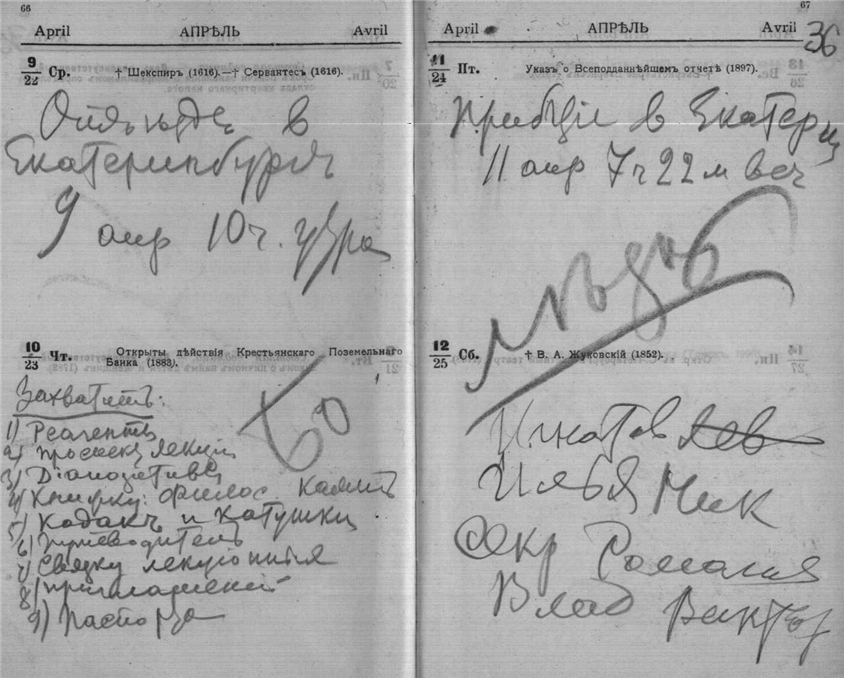 66
April АПРѢЛЬ Avril
9/22 Ср. † Шекспиръ (1616). — † Сервантесъ (1616).
Отъѣздъ в
Екатеринбургъ
9 апр 10 ч. утра
10/23 Чт. Открыты дѣйствія Крестьянскаго Поземельнаго
Банка (1883).
Захватить:
1) Реагенты
2) проспекц лекций
3) Діапозитивы
4) Книжку: Филос камить
5) Кодакъ и катушки
6) Путеводитель
7) Связку лекціо
8) приглашений
9) Паспорта
67
April АПРѢЛЬ Avril
36
11/24 Пт. Указъ о Всеподданнѣйшемъ отчетѣ (1897).
Прибытіе в Екатерин
11 апр 7 ч 22 м веч
12/25 Сб. † В. А. Жуковскій (1852).
Игнатов Лев
Илья Ник
Секр
Влад Виктор